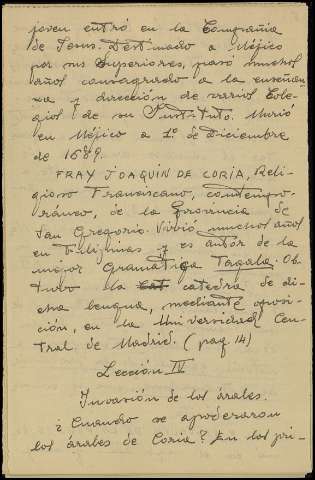 joven entró en la Compañía
de Jesus. Destinado a Méjico
por sus superiores, pasó muchos
años consagrado a la enseñan
za y dirección de varios Cole-
gios de su Instituto. Murió
en Méjico a 1º de Diciembre
de 1689.
FRAY JOAQUÍN DE CORIA, Reli-
gioso Franciscano, contempo-
ráneo, de la Provincia de
San Gregorio. Vivió muchos años
en Filipinas y es autor de la
mejor Gramática Tagala. Ob
tuvo la cat catedra de di-
cha lengua, mediante oposi-
ción, en la Universidad Cen-
tral de Madrid. (pag. 14)
Lección IV
Invasión de los árabes.
¿Cuando se apoderaron
los árabes de Coria? En los pri-